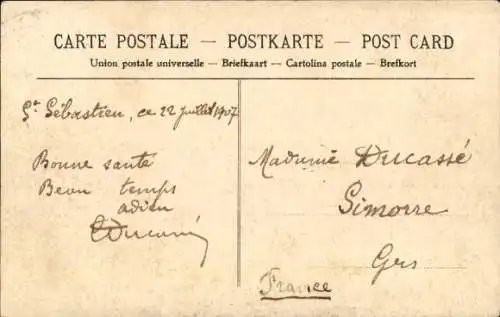 CARTE POSTALE — POSTKARTE — POST CARD
Union postale universelle — Briefkaart — Cartolina postale — Brefkort
St Sébastien, ce 22 juillet 1907
Bonne santé
Beau temps
adieu
Madame Ducassé
Simorre
Gers
France